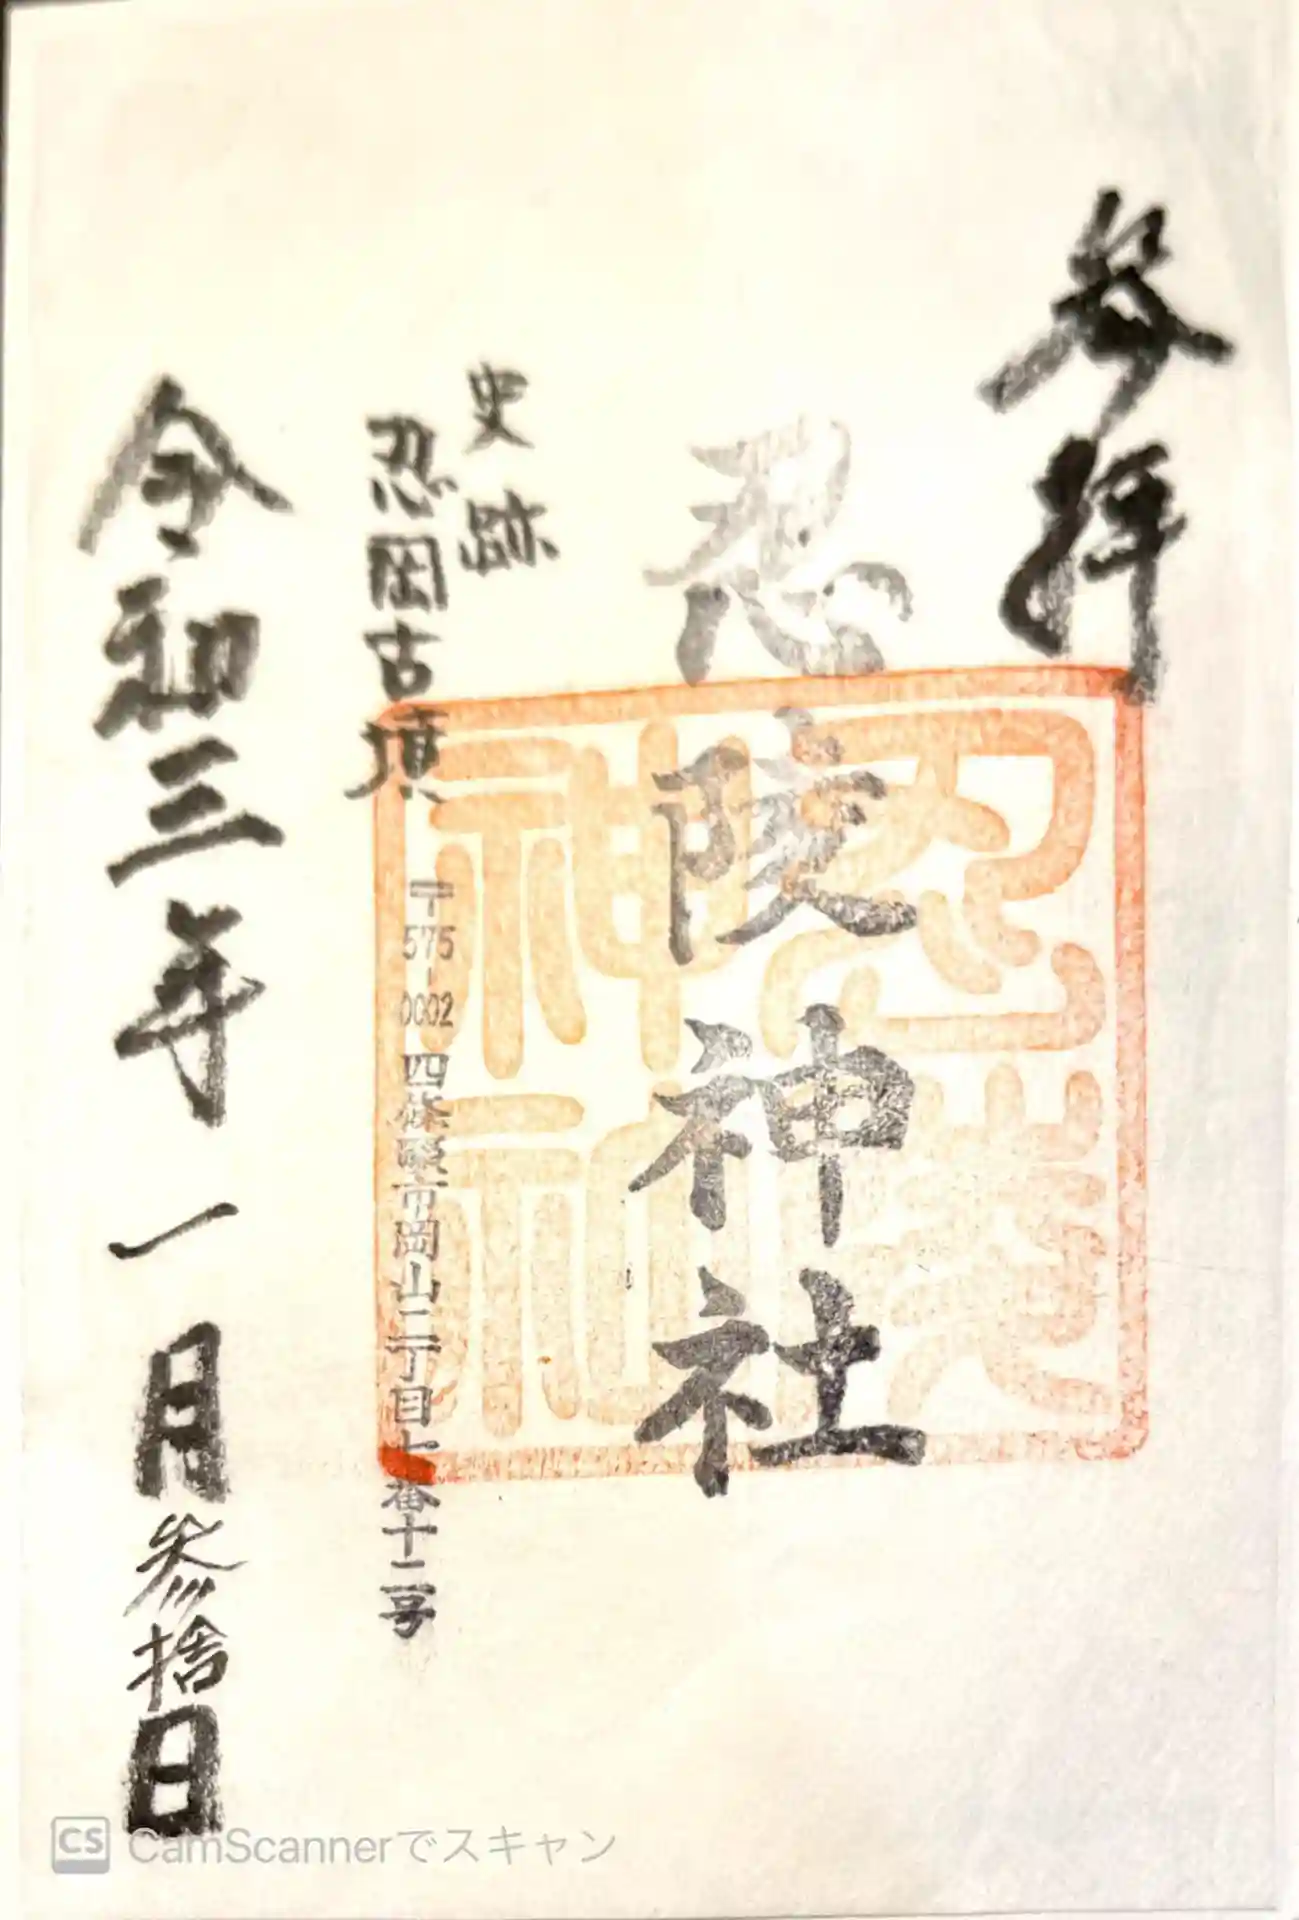 参拝
忍陵神社
忍陵
神社
史跡
忍岡古墳
〒575-0002 四條畷市岡山二丁目七番十二号
令和三年一月参拾日
CS CamScannerでスキャン